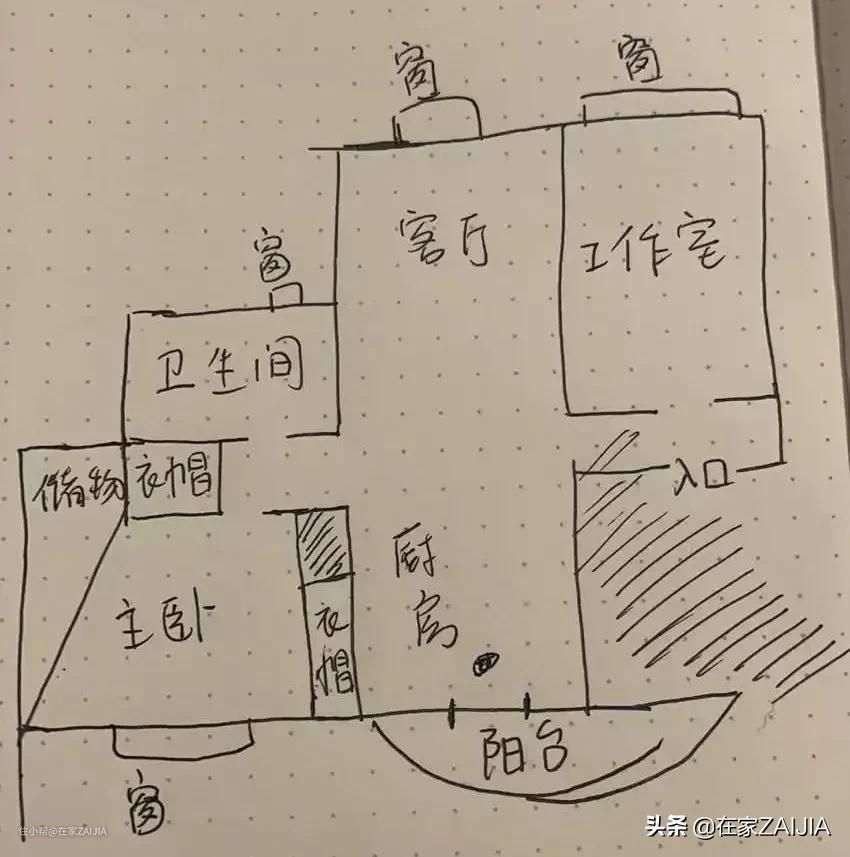 窗
窗
窗
客厅
工作室
卫生间
储物
衣帽
入口
主卧
衣帽
厨房
阳台
窗
住小帮@在家ZAIJIA
头条 @在家ZAIJIA